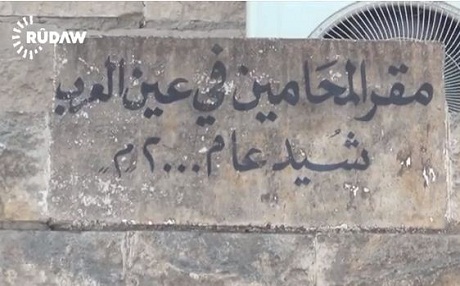 RÛDAW
مقر المحَامين في عين العرب
شُيد عام ٢٠٠٠م